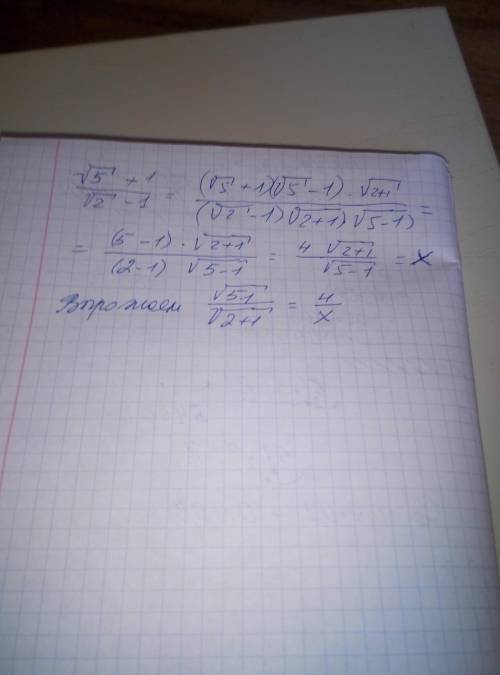 (√5 + 1)/(√2 - 1) = ((√5 + 1)(√5 - 1) · √(2+1))/((√2 - 1)(√(2+1)) √(5-1)) =
= ((5 - 1) · √(2+1))/((2-1) √(5-1)) = (4 √(2+1))/√(5-1) = x
Выражаем √(5-1)/√(2+1) = 4/x